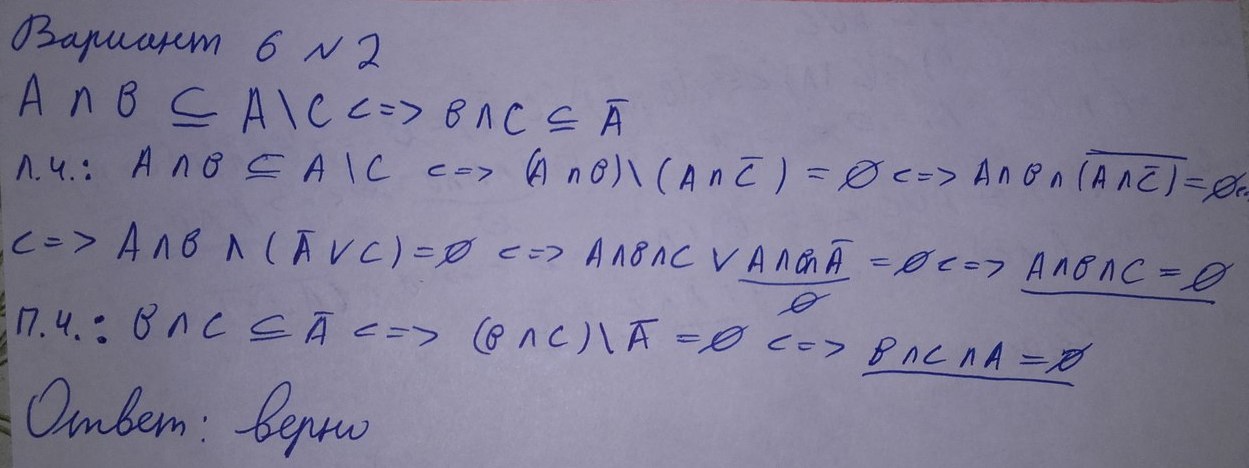 Вариант 6 №2
A ∩ B ⊆ A \ C <=> B ∩ C ⊆ A̅
Л.Ч.: A ∩ B ⊆ A \ C <=> (A ∩ B) \ (A ∩ C̅) = ∅ <=> A ∩ B ∩ (\overline{A ∩ C̅}) = ∅ <=>
<=> A ∩ B ∩ (A̅ ∪ C) = ∅ <=> A ∩ B ∩ C ∪ A ∩ B ∩ A̅ = ∅ <=> A ∩ B ∩ C = ∅
∅
П.Ч.: B ∩ C ⊆ A̅ <=> (B ∩ C) \ A̅ = ∅ <=> B ∩ C ∩ A = ∅
Ответ: верно